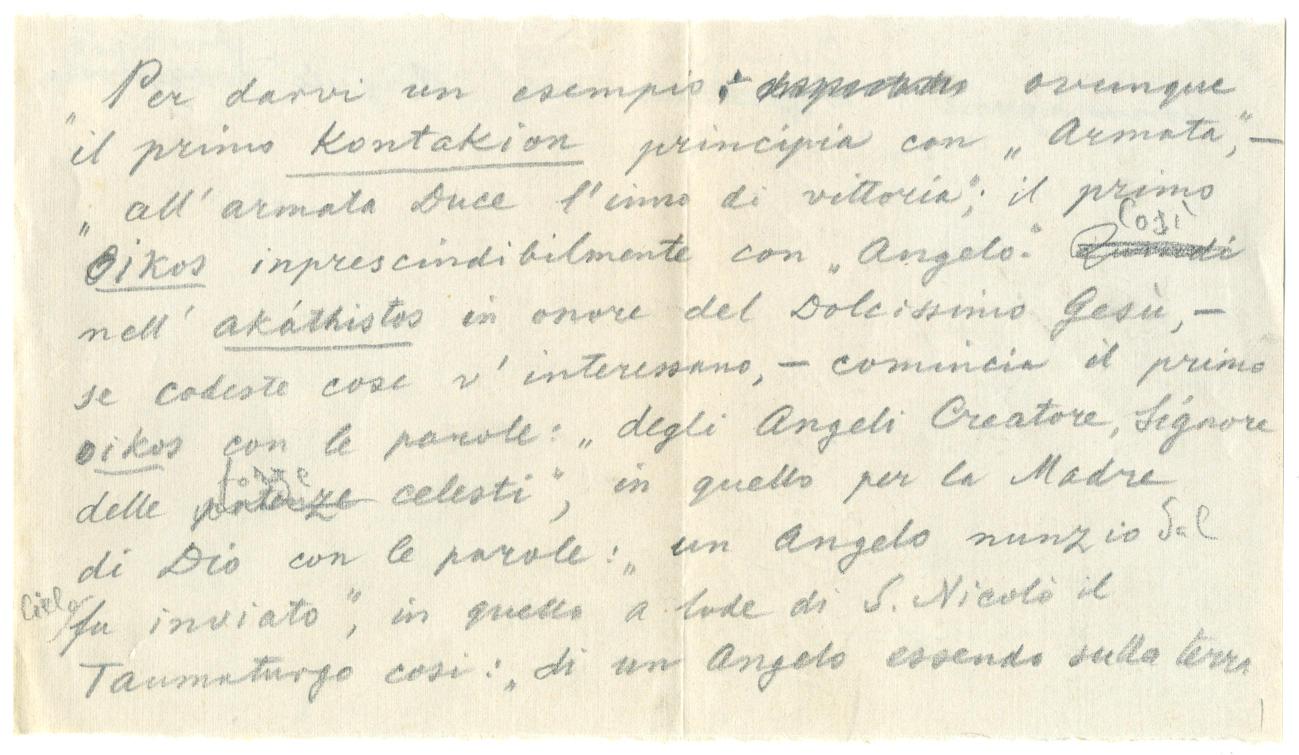 „Per darvi un esempio, ovunque
il primo Kontakion principia con „Armata”, —
„all' armata Duce l'inno di vittoria”; il primo
Oikos inprescindibilmente con „Angelo.” Così
nell' akáthistos in onore del Dolcissimo Gesù, —
se codeste cose v' interessano, — comincia il primo
oikos con le parole: „degli Angeli Creatore, Signore
delle potenze forze celesti”, in quello per la Madre
di Dio con le parole: „un Angelo nunzio dal
cielo fu inviato”, in quello a lode di S. Nicolò il
Taumaturgo così: „di un Angelo essendo sulla terra